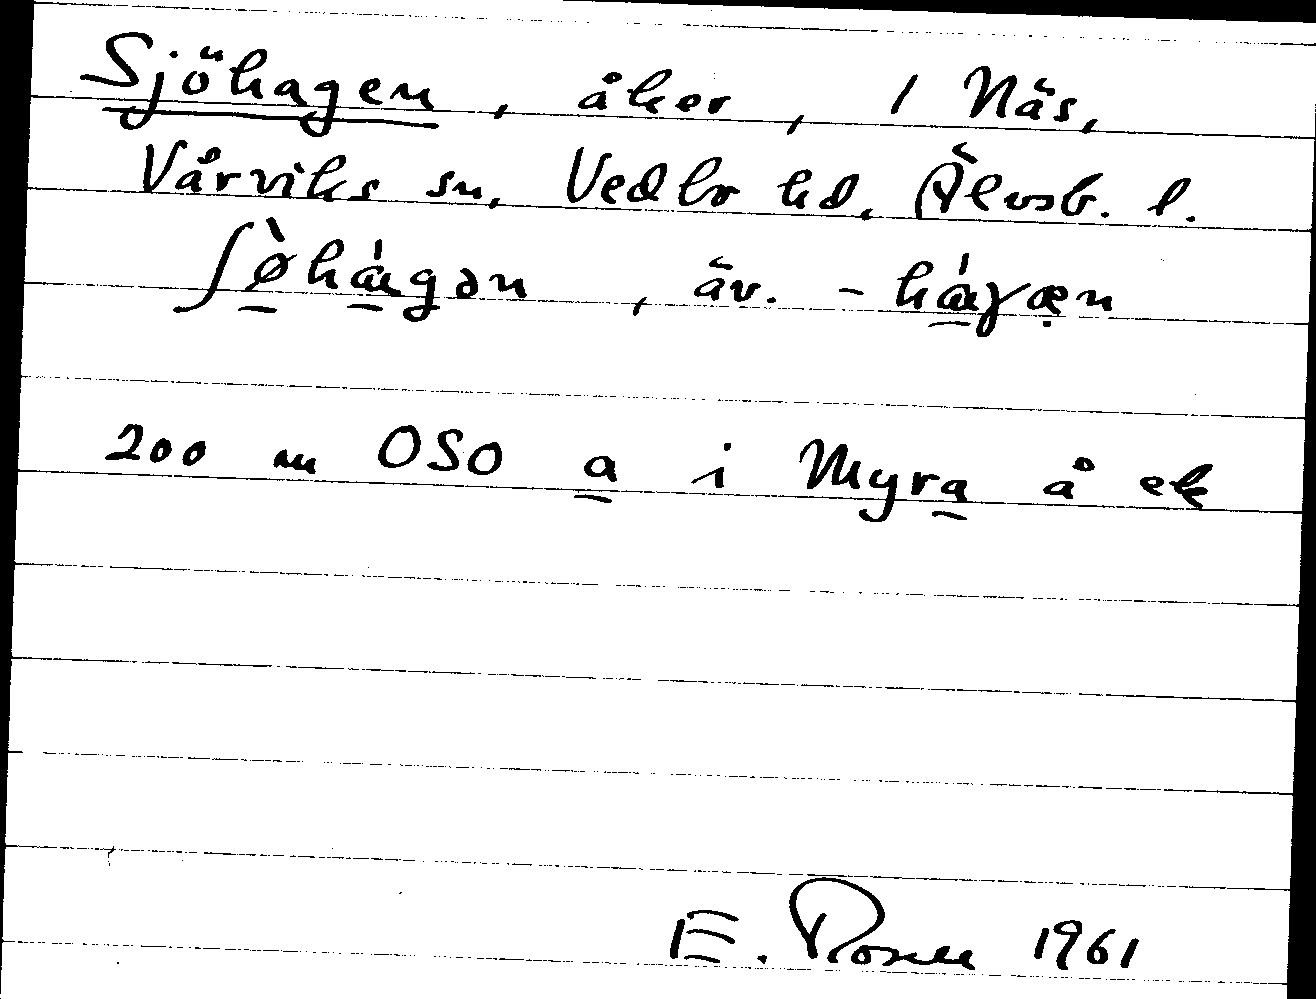 Sjöhagen, åker, 1 Näs,
Vårviks sn, Vedbo hd, Älvsb. l.
ʃø̀hágən, äv. -háγæ̣n
200 m OSO a i Myra å ek
E. Rosell 1961